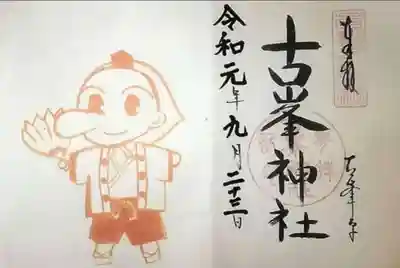 奉拝
古峯神社
古峯ヶ原
令和元年九月二十二日